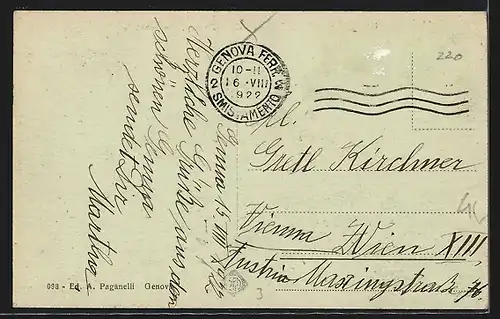 220
GENOVA FERR.
10-11
16·VIII
922
SMISTAMENTO
2 2
Genua 15 VIII
Herzliche Grüße aus dem
schönen Genua
sendet Dir
Martha
Frl.
Gretl Kirchner
Vienna Wien XIII
Austria Maxingstraße
098 - Ed. A. Paganelli Genova
3